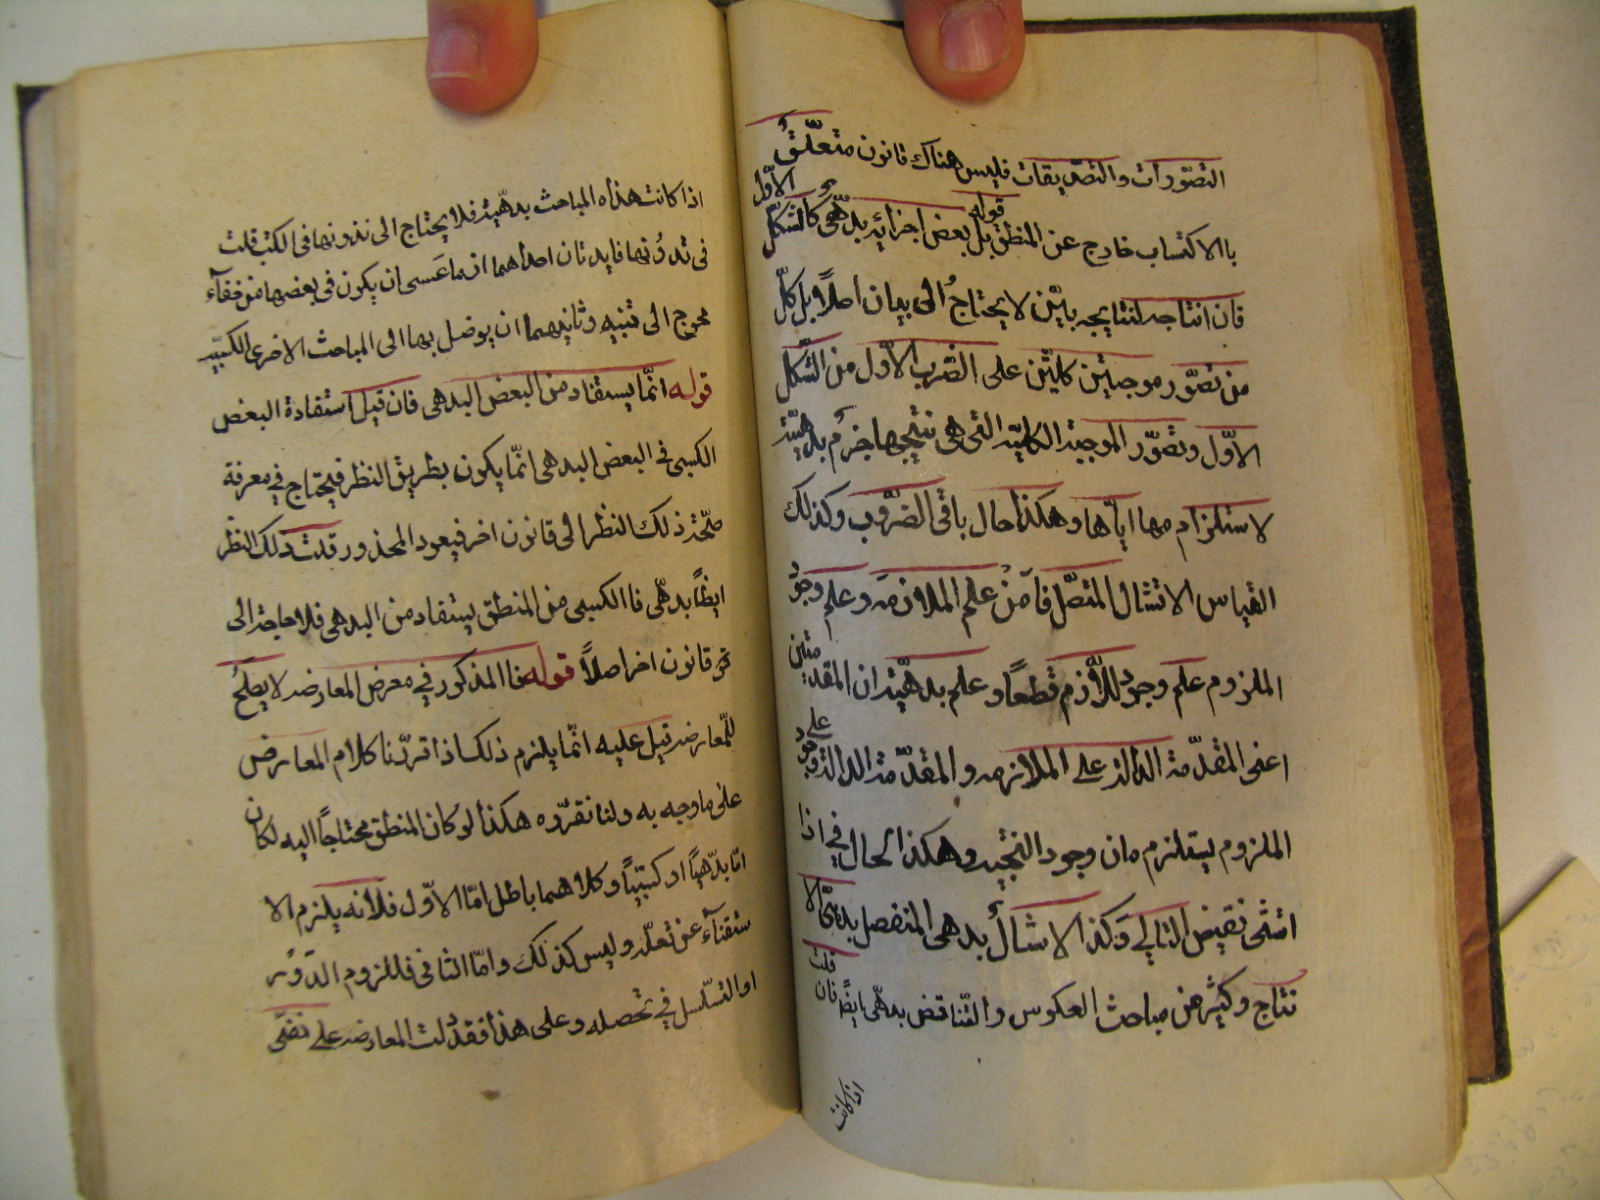 التصورات والتصديقات فليس هناك قانون متعلق
بالاكتساب خارج عن المنطق قوله بل بعض اجزائه بدهى كالشكل الاول
فان انتاجه لنتايجه بين لا يحتاج الى بيان اصلا بل كل
من تصور موجبتين كليتين على الضرب الاول من الشكل
الاول وتصور الموجبة الكلية التى هى نتيجها جزم بدهية
لاستلزامهما اياها وهكذا حال باقى الضروب وكذلك
القياس الاتشال المتصل فا من علم الملازمة وعلم وجود
الملزوم علم وجود اللازم قطعا وعلم بدهية ان المقدمتين
اعنى المقدمة الدالة على الملازمه والمقدمة الدالة على وجود
الملزوم يستلزمان وجود النتجيه وهكذا الحال في اذا
استثى نقيض التالي وكذا الاشال بدهى المنفصل بدهى الا
نتاج وكثير من مباحث العكوس والتناقض بدهى ايضا قلت فان
اذا كانت
اذا كانت هذه المباحث بدهية فلا يحتاج الى تذونها فى الكتب قلت
فى تدونها فايدتان احداهما انما عسى ان يكون فى بعضها من خفاء
محوج الى تنبيه وثانيهما ان يوصل بها الى المباحث الاخرى الكسبيه
قوله انما يستفاد من البعض البدهى فان قيل استفادة البعض
الكسبى فى البعض البدهى انما يكون بطريق النظر فيحتاج في معرفة
صحة ذلك النظر الى قانون اخر فيعود المحذور قلت ذلك النظر
ايظا بدهى فاالكسبى من المنطق يستفاد من البدهى فلا حاجة الى
قانون اخر اصلا قوله فا المذكور في معرض المعارضه لا يصلح
للمعارضه قيل عليه انما يلزم ذلك اذا قررنا كلام المعارض
على ما وجه به ولنا نقرره هكذا لو كان المنطق محتاجا اليه لكان
اما بدهيا او كسبيا وكلاهما باطل اما الاول فلانه يلزم الا
ستغناء عن تعلمه وليس كذلك واما الثانى فللزوم الدور
او التسلسل في تحصله وعلى هذا فقد دلت المعارضه على نفى